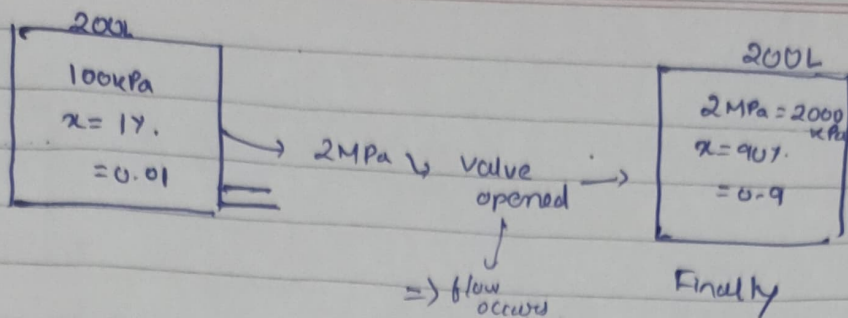 200L
100kPa
x = 1%.
= 0.01
2MPa
valve
opened
=> flow
occurs
200L
2MPa = 2000
kPa
x = 90%.
= 0.9
Finally